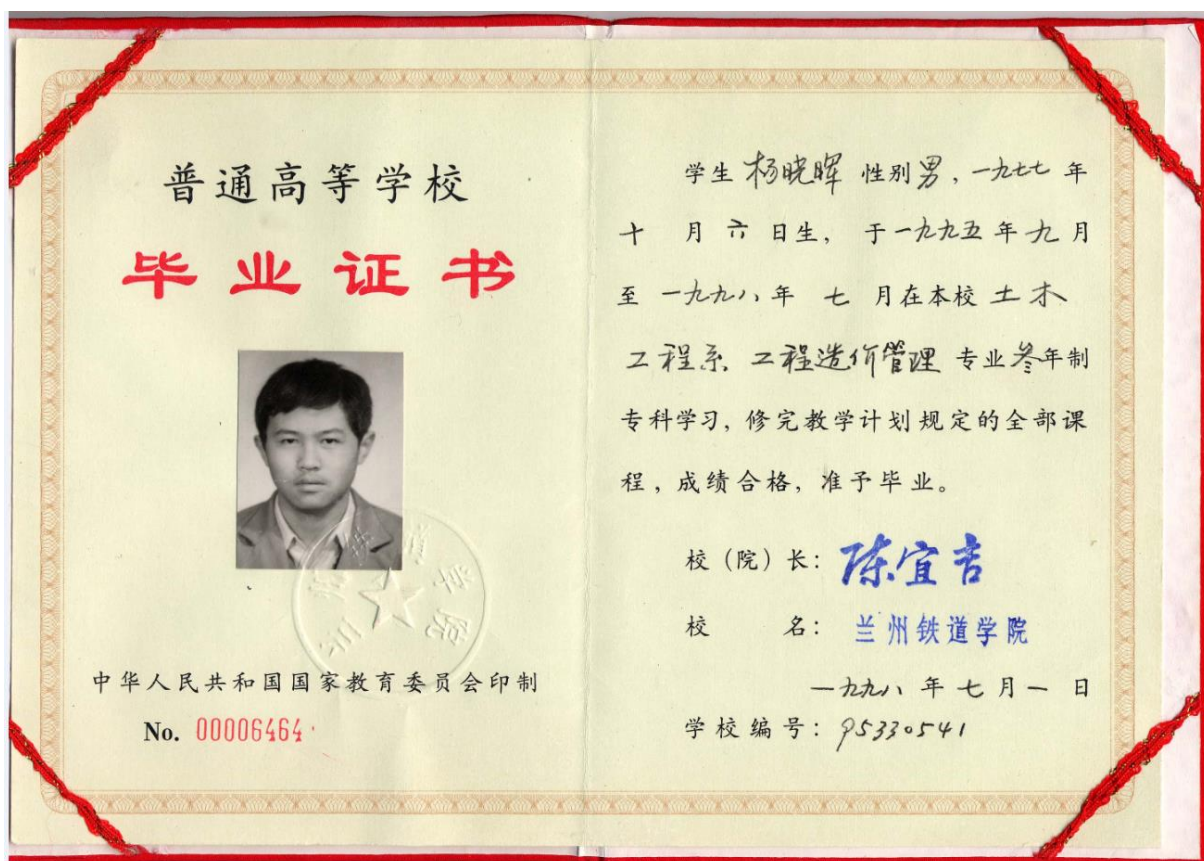 普通高等学校
毕业证书
中华人民共和国国家教育委员会印制
No. 00006464
学生 杨晓晖 性别男，一九七七年
十月六日生，于一九九五年九月
至一九九八年七月在本校土木
工程系 工程造价管理 专业叁年制
专科学习，修完教学计划规定的全部课
程，成绩合格，准予毕业。
校（院）长：陈宜吉
校名：兰州铁道学院
一九九八年七月一日
学校编号：95330541